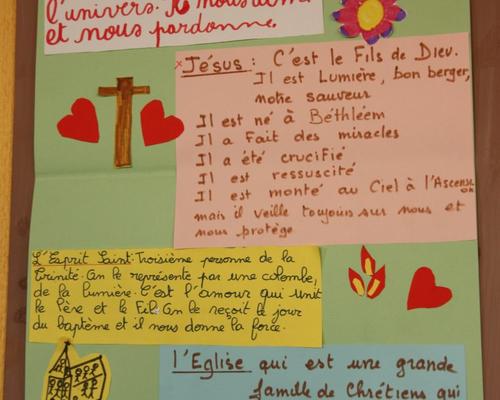 l'univers. Il nous aime
et nous pardonne.
Jésus : C'est le Fils de Dieu.
Il est Lumière, bon berger,
notre sauveur
Il est né à Béthléem
Il a fait des miracles
Il a été crucifié
Il est ressuscité
Il est monté au Ciel à l'Ascension
mais il veille toujours sur nous et
nous protège
L'Esprit Saint: Troisième personne de la
trinité. On le représente par une colombe,
de la lumière. C'est l'amour qui unit
le Père et le Fils. On le reçoit le jour
du baptême et il nous donne la force.
l'Eglise qui est une grande
famille de Chrétiens qui